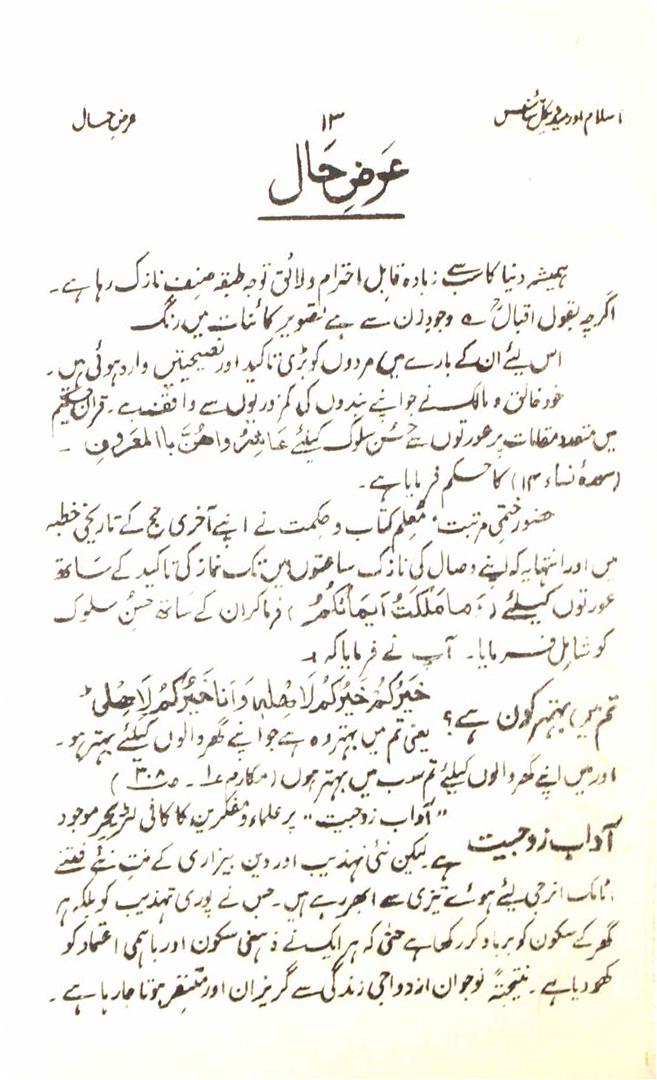 اسلام اور میڈیکل سائنس ۱۳ عرضِ حال
عَرضِ حَال
ہمیشہ دنیا کا سب سے زیادہ قابل احترام ولائق توجہ طبقہ صنفِ نازک رہا ہے۔
اگرچہ بقول اقبالؒ ؎ وجودِ زن سے ہے تصویرِ کائنات میں رنگ
اس لیئے ان کے بارے میں مردوں کو بڑی تاکید اور نصیحتیں وارد ہوئی ہیں۔
خود خالق و مالک نے جو اپنے بندوں کی کمزوریوں سے واقف ہے۔ قرآن حکیم
میں متعدد مقامات پر عورتوں سے حُسنِ سلوک کیلئے عَاشِرُواھُنَّ بِاالمَعَروفِ ۔
(سورۂ نساء ۱۳) کا حکم فرمایا ہے۔
حضور ختمی مرتبت، معلم کتاب و حکمت نے اپنے آخری حج کے تاریخی خطبہ
میں اور انتہا یہ کہ اپنے وصال کی نازک ساعتوں میں تک نماز کی تاکید کے ساتھ
عورتوں کیلئے (وَمَا مَلَکَتُ اَیمَانُکُمُ) فرما کر ان کے ساتھ حسنِ سلوک
کو شامل فرمایا۔ آپ نے فرمایا کہ
خَیرُکُمُ خَیرُکُم لَاھلِہٖ وَ اَنَا خَیرُکُمُ لَاھلِی
تم میں بہتر کون ہے؟ یعنی تم میں بہتر وہ ہے جو اپنے گھر والوں کیلئے بہتر ہو۔
اور میں اپنے گھر والوں کیلئے تم سب میں بہتر ہوں (مکارم ۱۔ ص ۳۰۸)
آداب زوجیت "آداب زوجیت" پر علماء و مفکرین کا کافی لٹریچر موجود
ہے لیکن نئی تہذیب اور دین بیزاری کے نت نئے فتنے
اٹامک انرجی لیئے ہوئے تیزی سے ابھر رہے ہیں۔ جس نے پوری تہذیب کو بلکہ ہر
گھر کے سکون کو برباد کر رکھا ہے حتیٰ کہ ہر ایک نے ذہنی سکون اور باہمی اعتماد کو
کھو دیا ہے۔ نتیجتہً نوجوان ازدواجی زندگی سے گریزان اور متنفر ہوتا جا رہا ہے۔